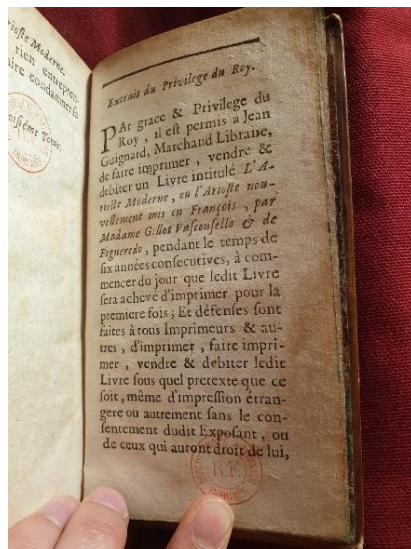 rioste Moderne.
rien entrepren-
aire condamner sa
oisiéme Tome.
Extrait du Privilege du Roy.
PAr grace & Privilege du
Roy, il est permis a Jean
Guignard, Marchand Libraire,
de faire imprimer, vendre &
debiter un Livre intitulé L'A-
rioste Moderne, ou l'Arioste nou-
vellement mis en François, par
Madame Gillot Vasconsello & de
Figueredo, pendant le temps de
six années consecutives, à com-
mencer du jour que ledit Livre
sera achevé d'imprimer pour la
premiere fois; Et défenses sont
faites à tous Imprimeurs & au-
tres, d'imprimer, faire impri-
mer, vendre & debiter ledit
Livre sous quel pretexte que ce
soit, même d'impression étran-
gere ou autrement sans le con-
sentement dudit Exposant, ou
de ceux qui auront droit de lui,
R.F.